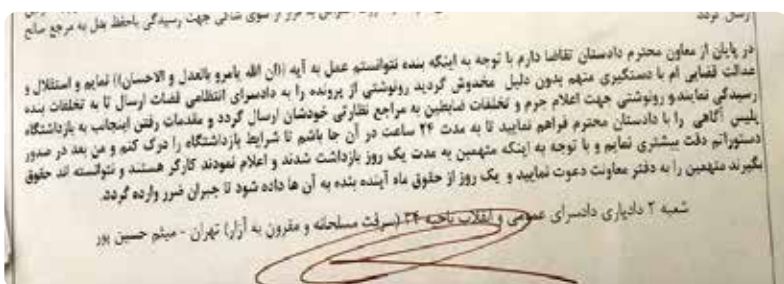 ارسال گردد
جهت رسیدگی باحفظ بدل به مرجع صالح
در پایان از معاون محترم دادستان تقاضا دارم با توجه به اینکه بنده نتوانستم عمل به آیه ((ان الله یامرو بالعدل و الاحسان)) نمایم و استقلال و
عدالت قضایی ام با دستگیری متهم بدون دلیل مخدوش گردید رونوشتی از پرونده را به دادسرای انتظامی قضات ارسال تا به تخلفات بنده
رسیدگی نمایند و رونوشتی جهت اعلام جرم و تخلفات ضابطین به مراجع نظارتی خودشان ارسال گردد و مقدمات رفتن اینجانب به بازداشتگاه
پلیس آگاهی را با دادستان محترم فراهم نمایید تا به مدت ۲۴ ساعت در آن جا باشم تا شرایط بازداشتگاه را درک کنم و من بعد در صدور
دستوراتم دقت بیشتری نمایم و با توجه به اینکه متهمین به مدت یک روز بازداشت شدند و اعلام نمودند کارگر هستند و نتوانسته اند حقوق
بگیرند متهمین را به دفتر معاونت دعوت نمایید و یک روز از حقوق ماه آینده بنده به آن ها داده شود تا جبران ضرر وارده گردد.
شعبه ۲ دادیاری دادسرای عمومی و انقلاب ناحیه ۳۴ (سرقت مسلحانه و مقرون به آزار) تهران - میثم حسین پور